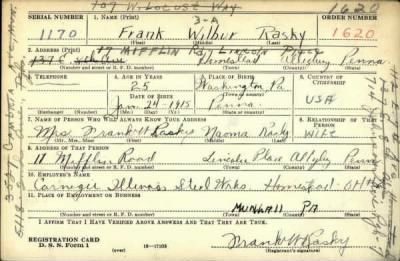 707 W. Locust Way
3-A
1620
SERIAL NUMBER
1. NAME (Print)
ORDER NUMBER
1170
Frank Wilbur Rasky
1620
(First) (Middle) (Last)
2. ADDRESS (Print)
17 MIFFLIN Rd, Lincoln Place
Homestead Allegheny Penna
(Number and street or R. F. D. number) (Town) (County) (State)
3. TELEPHONE
4. AGE IN YEARS
5. PLACE OF BIRTH
6. COUNTRY OF CITIZENSHIP
25
Washington, Pa
DATE OF BIRTH
(Town or county)
Jan. 24-1915
Penna
USA
(Exchange) (Number) (Mo.) (Day) (Yr.) (State or country)
7. NAME OF PERSON WHO WILL ALWAYS KNOW YOUR ADDRESS
8. RELATIONSHIP OF THAT PERSON
Mrs Frank W Rasky Naoma Rasky Wife
(Mr., Mrs., Miss) (First) (Middle) (Last)
9. ADDRESS OF THAT PERSON
11 Mifflin Road Lincoln Place Allghy Penna
(Number and street or R. F. D. number) (Town) (County) (State)
10. EMPLOYER'S NAME
Carnegie Illinois Steel Wrks. Homestead
11. PLACE OF EMPLOYMENT OR BUSINESS
MUNHALL PA
(Number and street or R. F. D. number) (Town) (County) (State)
I AFFIRM THAT I HAVE VERIFIED ABOVE ANSWERS AND THAT THEY ARE TRUE.
REGISTRATION CARD
D. S. S. Form 1
(over)
16-17105
Frank W Rasky
(Registrant's signature)